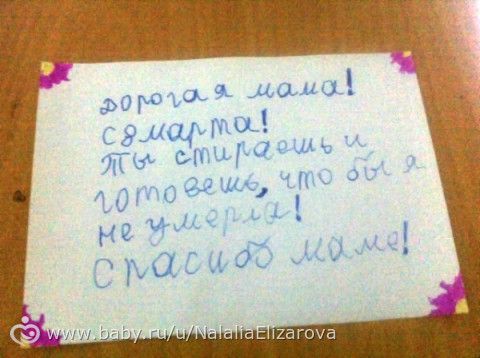 дорогая мама!
с 8 марта!
Ты стираешь и
готовешь, что бы я
не умерла!
Спасибо маме!
www.baby.ru/u/NalaliaElizarova